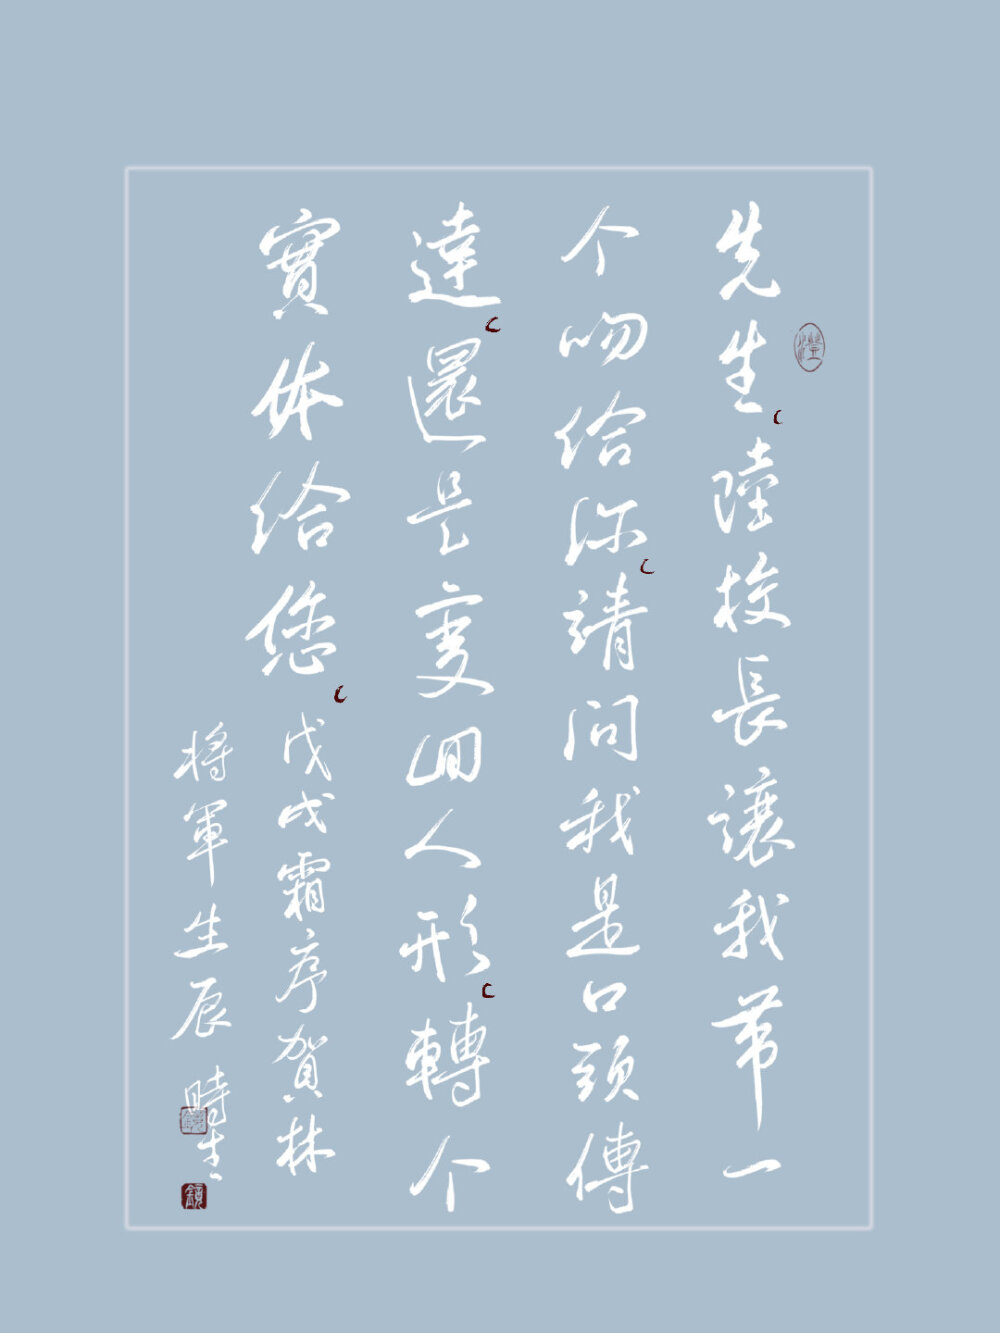 先生陸校長讓我带一
个吻给你請问我是口頭傳
達還是变回人形轉个
實体给您戊戌霜序賀林
將軍生辰時生
鏡